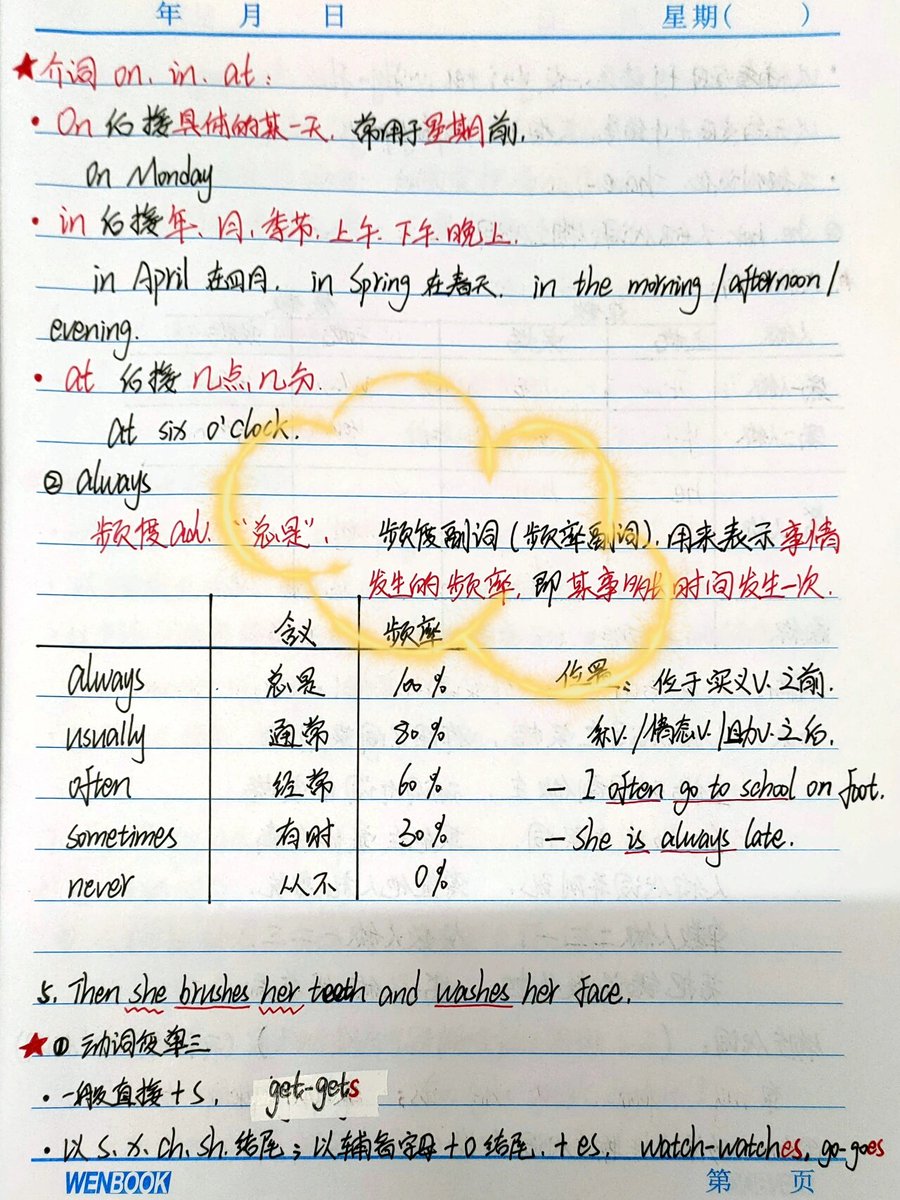 年 月 日 星期( )
★介词 on. in. at:
• On 后接具体的某一天. 常用于星期前.
On Monday
• in 后接年、月、季节. 上午. 下午. 晚上.
in April 在四月. in Spring 在春天. in the morning / afternoon /
evening.
• at 后接 几点几分.
at six o'clock.
② always
频度adv. "总是". 频度副词(频率副词). 用来表示事情
发生的频率. 即某事多长时间发生一次.
含义 频率
always 总是 100% 位置: 位于实义v.之前.
usually 通常 80% 系v./情态v./助v.之后.
often 经常 60% — I often go to school on foot.
sometimes 有时 30% — She is always late.
never 从不 0%
5. Then she brushes her teeth and washes her face.
★① 动词变单三
• 一般直接+s. get-gets
• 以s. x. ch. sh. 结尾; 以辅音字母+o结尾. +es. watch-watches, go-goes
WENBOOK 第 页